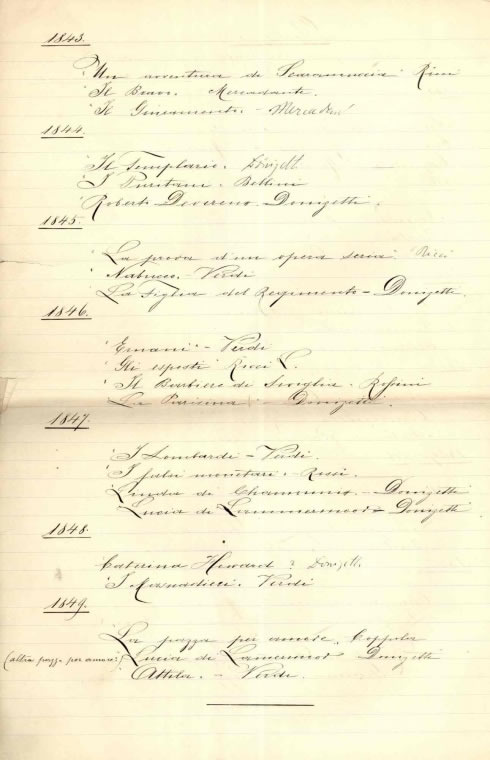 1843.
Un avventura de Scaramuccia Ricci
Il Bravo. Mercadante.
Il Giuramento. - Mercadan
1844.
Il Templario. Donizett.
I Puritani. Bellini
Robert Devereux - Donizetti.
1845.
La prova d'un opera seria. Ricci
Nabucco. - Verdi
La Figlia del Regimento - Donizetti.
1846.
Ernani - Verdi
Gli esposti Ricci L.
Il Barbiere de Siviglia. Rossini
La Parisina - Donizetti
1847.
I Lombardi - Verdi.
I falsi monetari. Rossi.
Linda de Chamounix. - Donizetti
Lucia de Lammermoor - Donizetti
1848.
Caterina Howard ? Donizett.
I Masnadieri. Verdi
1849.
La pazza per amore. Coppola
(altra pazza per amore?) Lucia de Lamermoor Donizetti
Attila. - Verdi.